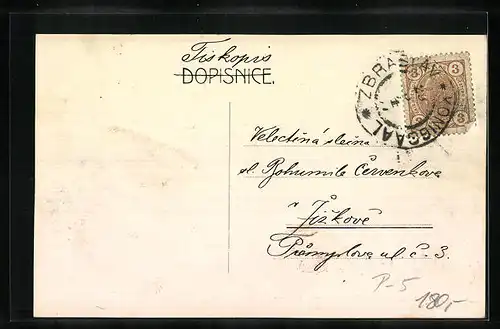 Tiskopis
DOPISNICE.
ZBRASLAV * KÖNIGSAAL *
3 3
Velectěná slečna
sl. Bohumila Červenkova
v Žižkově
Přemyslova ul. č. 3.
P-5
180,-